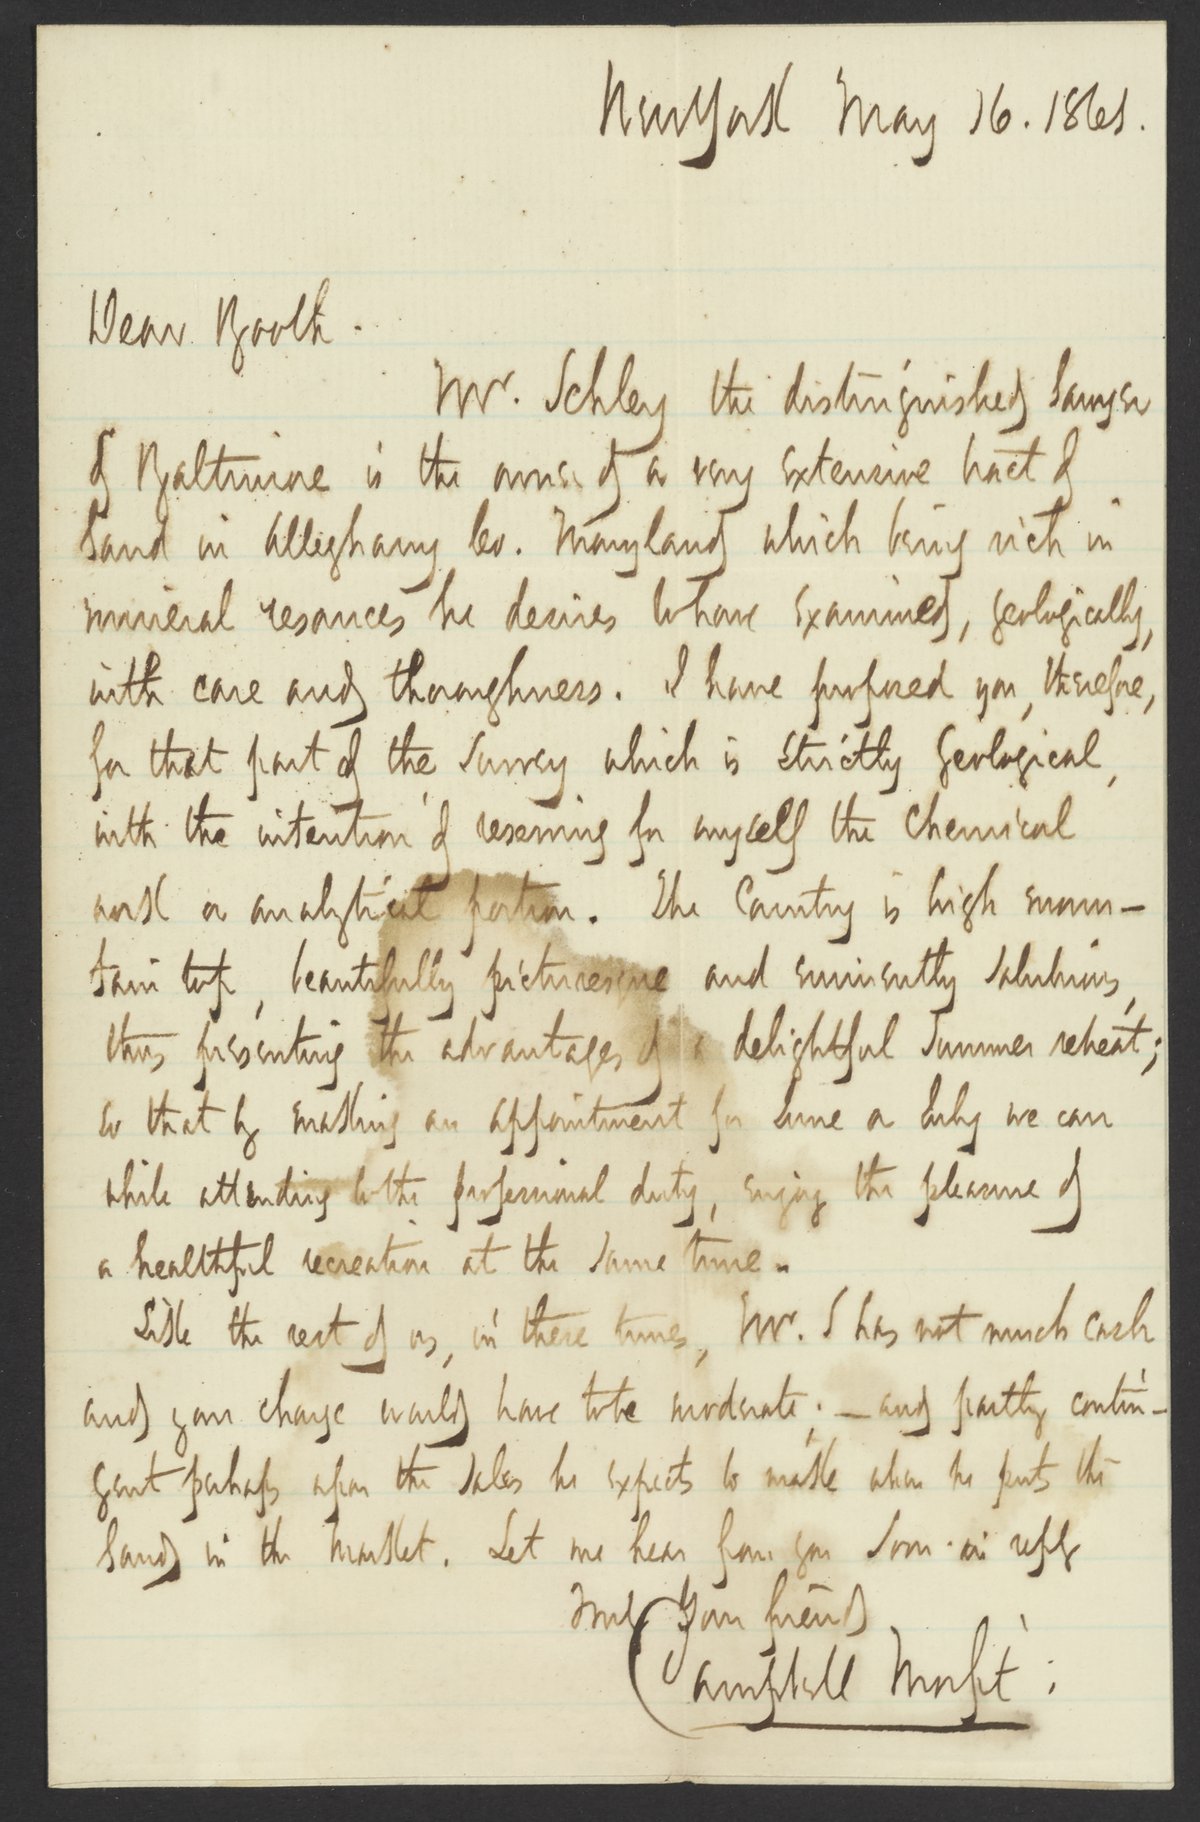 New York May 16. 1861.
Dear Booth.
Mr. Schley the distinguished Lawyer
of Baltimore is the owner of a very extensive tract of
Land in Alleghany Co. Maryland which being rich in
mineral resources he desires to have examined, geologically,
with care and thoroughness. I have proposed you, therefore,
for that part of the survey which is strictly Geological,
with the intention of reserving for myself the Chemical
work or analytical portion. The Country is high moun-
tain top, beautifully picturesque and eminently salubrious,
thus presenting the advantages of a delightful Summer retreat;
so that by making an appointment for June or July we can
while attending to the professional duty, enjoy the pleasure of
a healthful recreation at the same time.
Like the rest of us, in these times, Mr. S has not much cash
and your charge would have to be moderate; — and partly contin-
gent perhaps upon the sales he expects to make when he puts the
Land in the Market. Let me hear from you soon in reply
Truly Your friend
Campbell Morfit